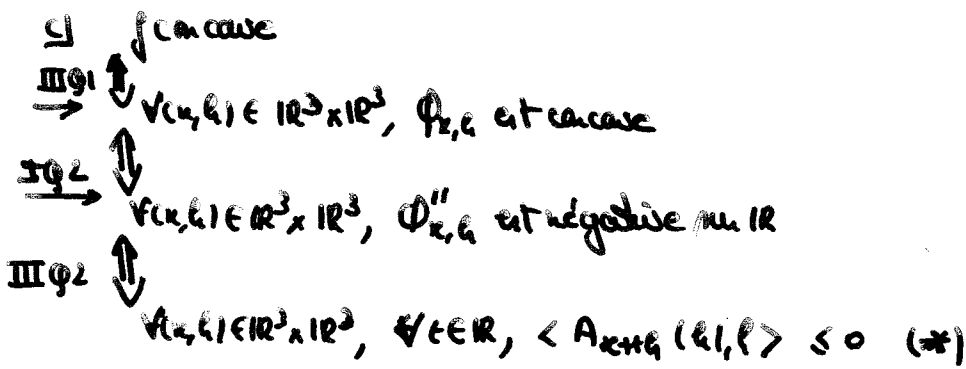 c) f concave
IIIQ1 → ⇕ ∀(x,h) ∈ ℝ³×ℝ³, φ_{x,h} est concave
IQ2 → ⇕ ∀(x,h) ∈ ℝ³×ℝ³, φ''_{x,h} est négative sur ℝ
IIIQ2 ⇕ ∀(x,h) ∈ ℝ³×ℝ³, ∀t∈ℝ, < A_{x+th} (h), h > ≤ 0 (*)